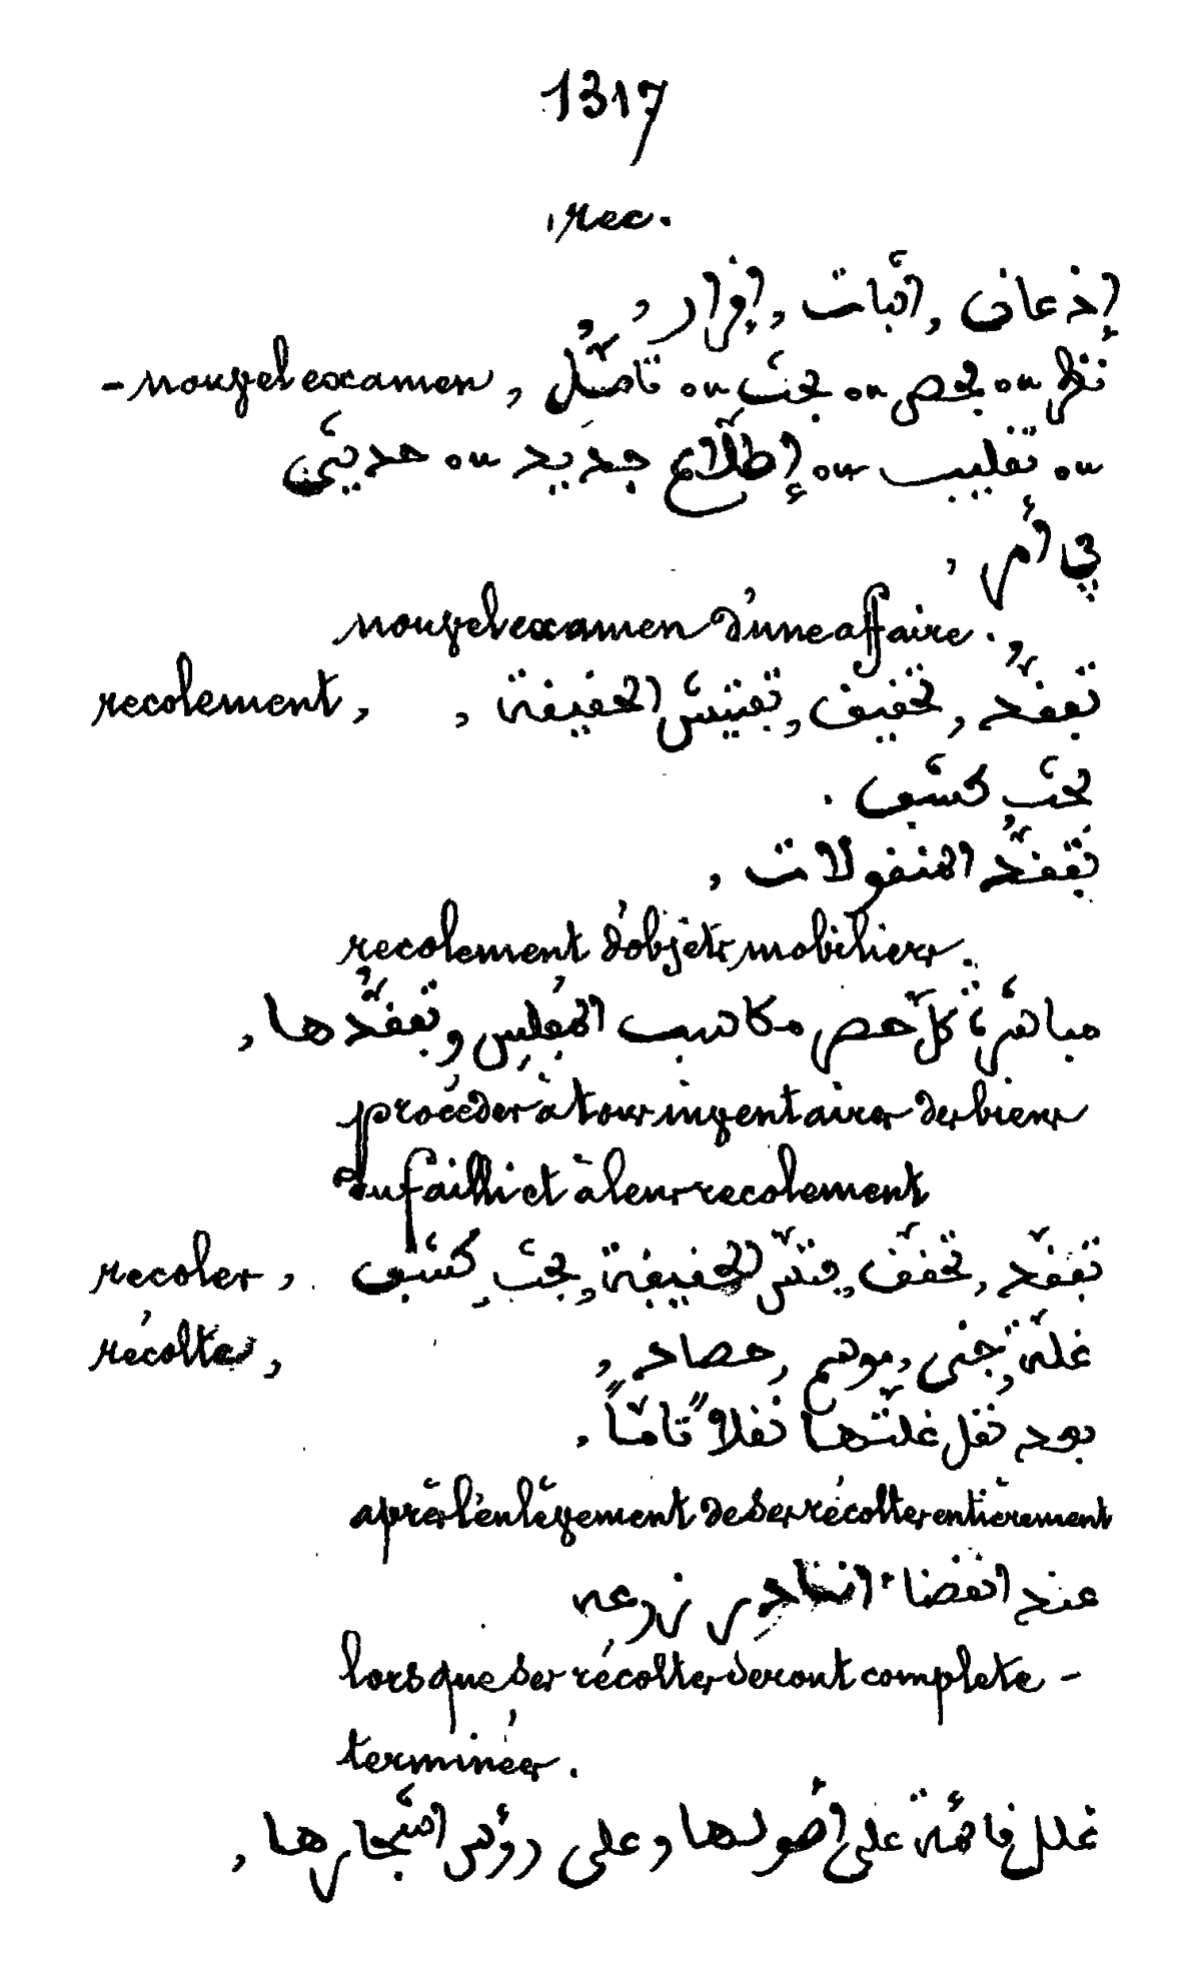 1317
rec.
إذعان, اثبات, إقرار,
- nouvel examen, نظر ou فحص ou بحث ou تأمّل
ou تقليب ou إطلاع جديد ou حديث
في أمر,
nouvel examen d'une affaire.
recolement, تفقّد, تحقيق, تفتيش الحقيقة,
بحث كشف.
تفقّد المنقولات,
recolement d'objets mobiliers.
مباشرة كلّ حصر مكاسب المفلس وتفقّدها,
procéder à tous inventaires des biens
du failli et à leur recolement
recoler, تفقّد, تحقّق, فتّش الحقيقة, بحث كشف
récolte, غلّة, جنى, موسم, حصاد,
بعد نقل غلّتها نقلاً تامّاً,
après l'enlèvement de ses récoltes entièrement
عند انقضاء زرعه
lorsque ses récoltes seront complete-
terminées.
غلل قائمة على أصولها وعلى رؤس اشجارها,